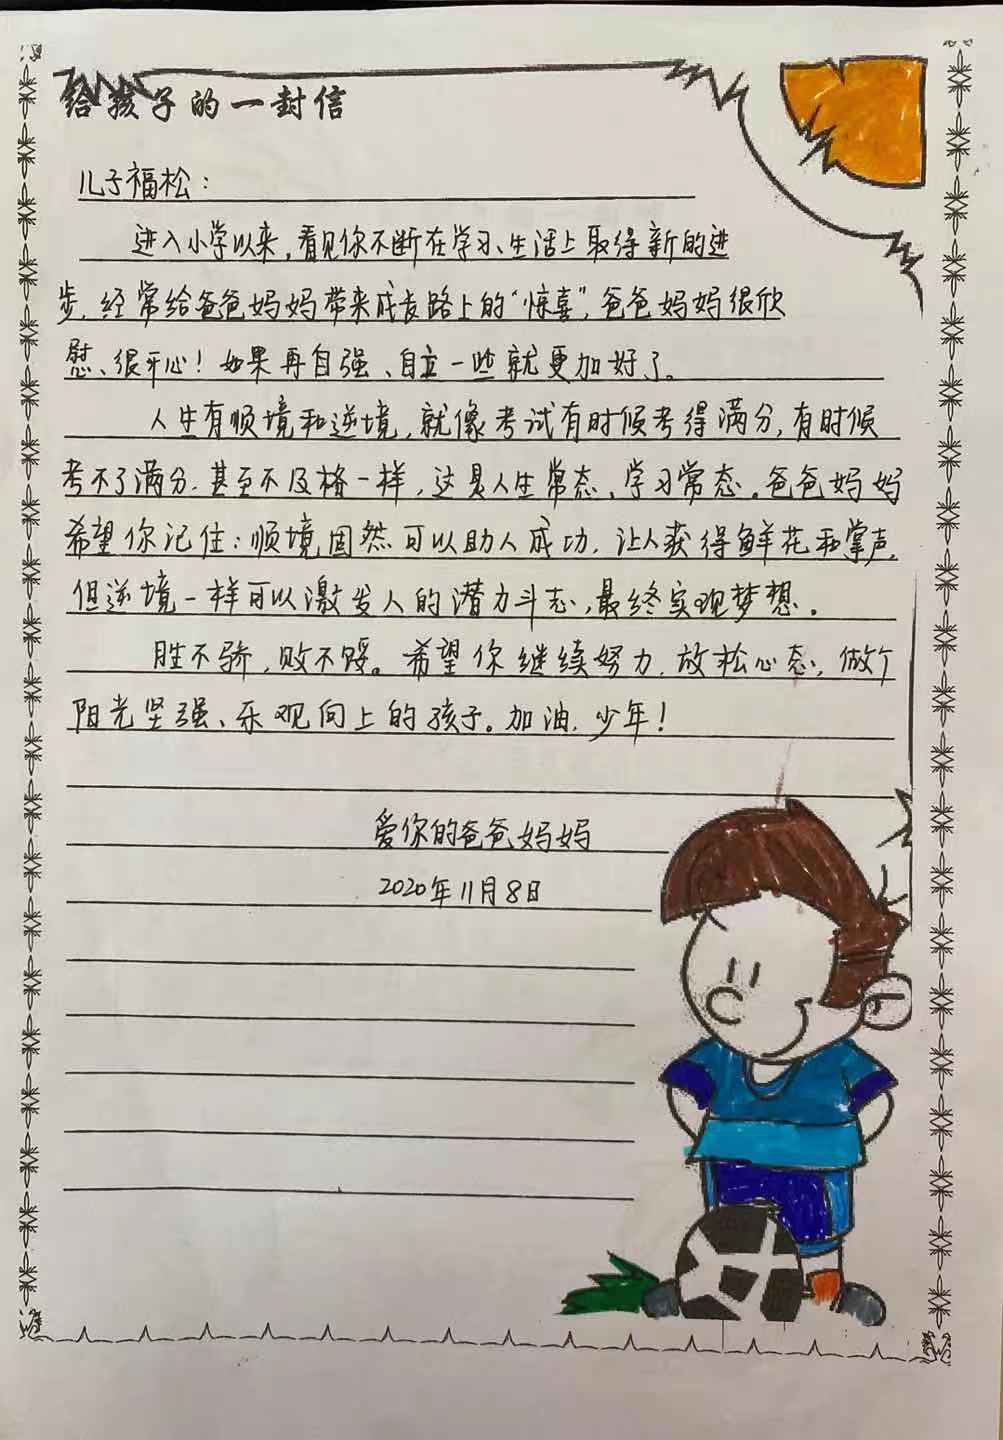 给孩子的一封信
儿子福松：
进入小学以来，看见你不断在学习、生活上取得新的进
步，经常给爸爸妈妈带来成长路上的“惊喜”，爸爸妈妈很欣
慰、很开心！如果再自强、自立一些就更加好了。
人生有顺境和逆境，就像考试有时候考得满分，有时候
考不了满分，甚至不及格一样，这是人生常态、学习常态。爸爸妈妈
希望你记住：顺境固然可以助人成功，让人获得鲜花和掌声，
但逆境一样可以激发人的潜力斗志，最终实现梦想。
胜不骄，败不馁。希望你继续努力，放松心态，做个
阳光坚强、乐观向上的孩子。加油，少年！
爱你的爸爸妈妈
2020年11月8日